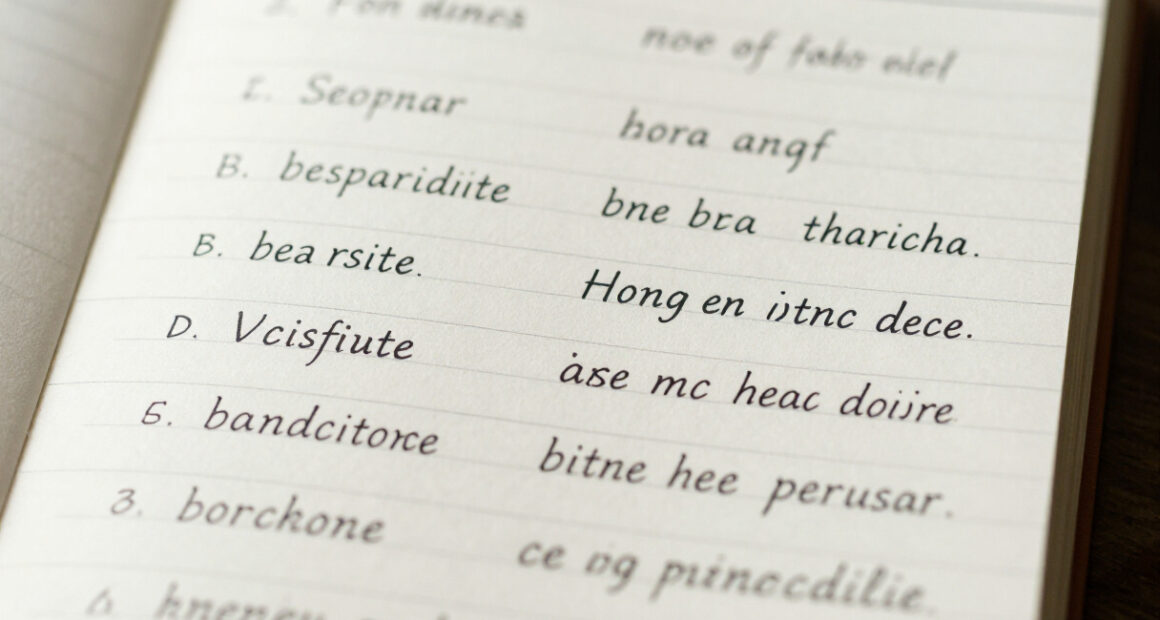 noe of
I. Seopnar hora angf
B. besparidiite bne bra tharicha.
B. bea rsite. Hong en iitnc dece.
D. Vcisfiute arse mc heac doiire
5. bandcitorce bitne hee perusar.
3. borchone ce og